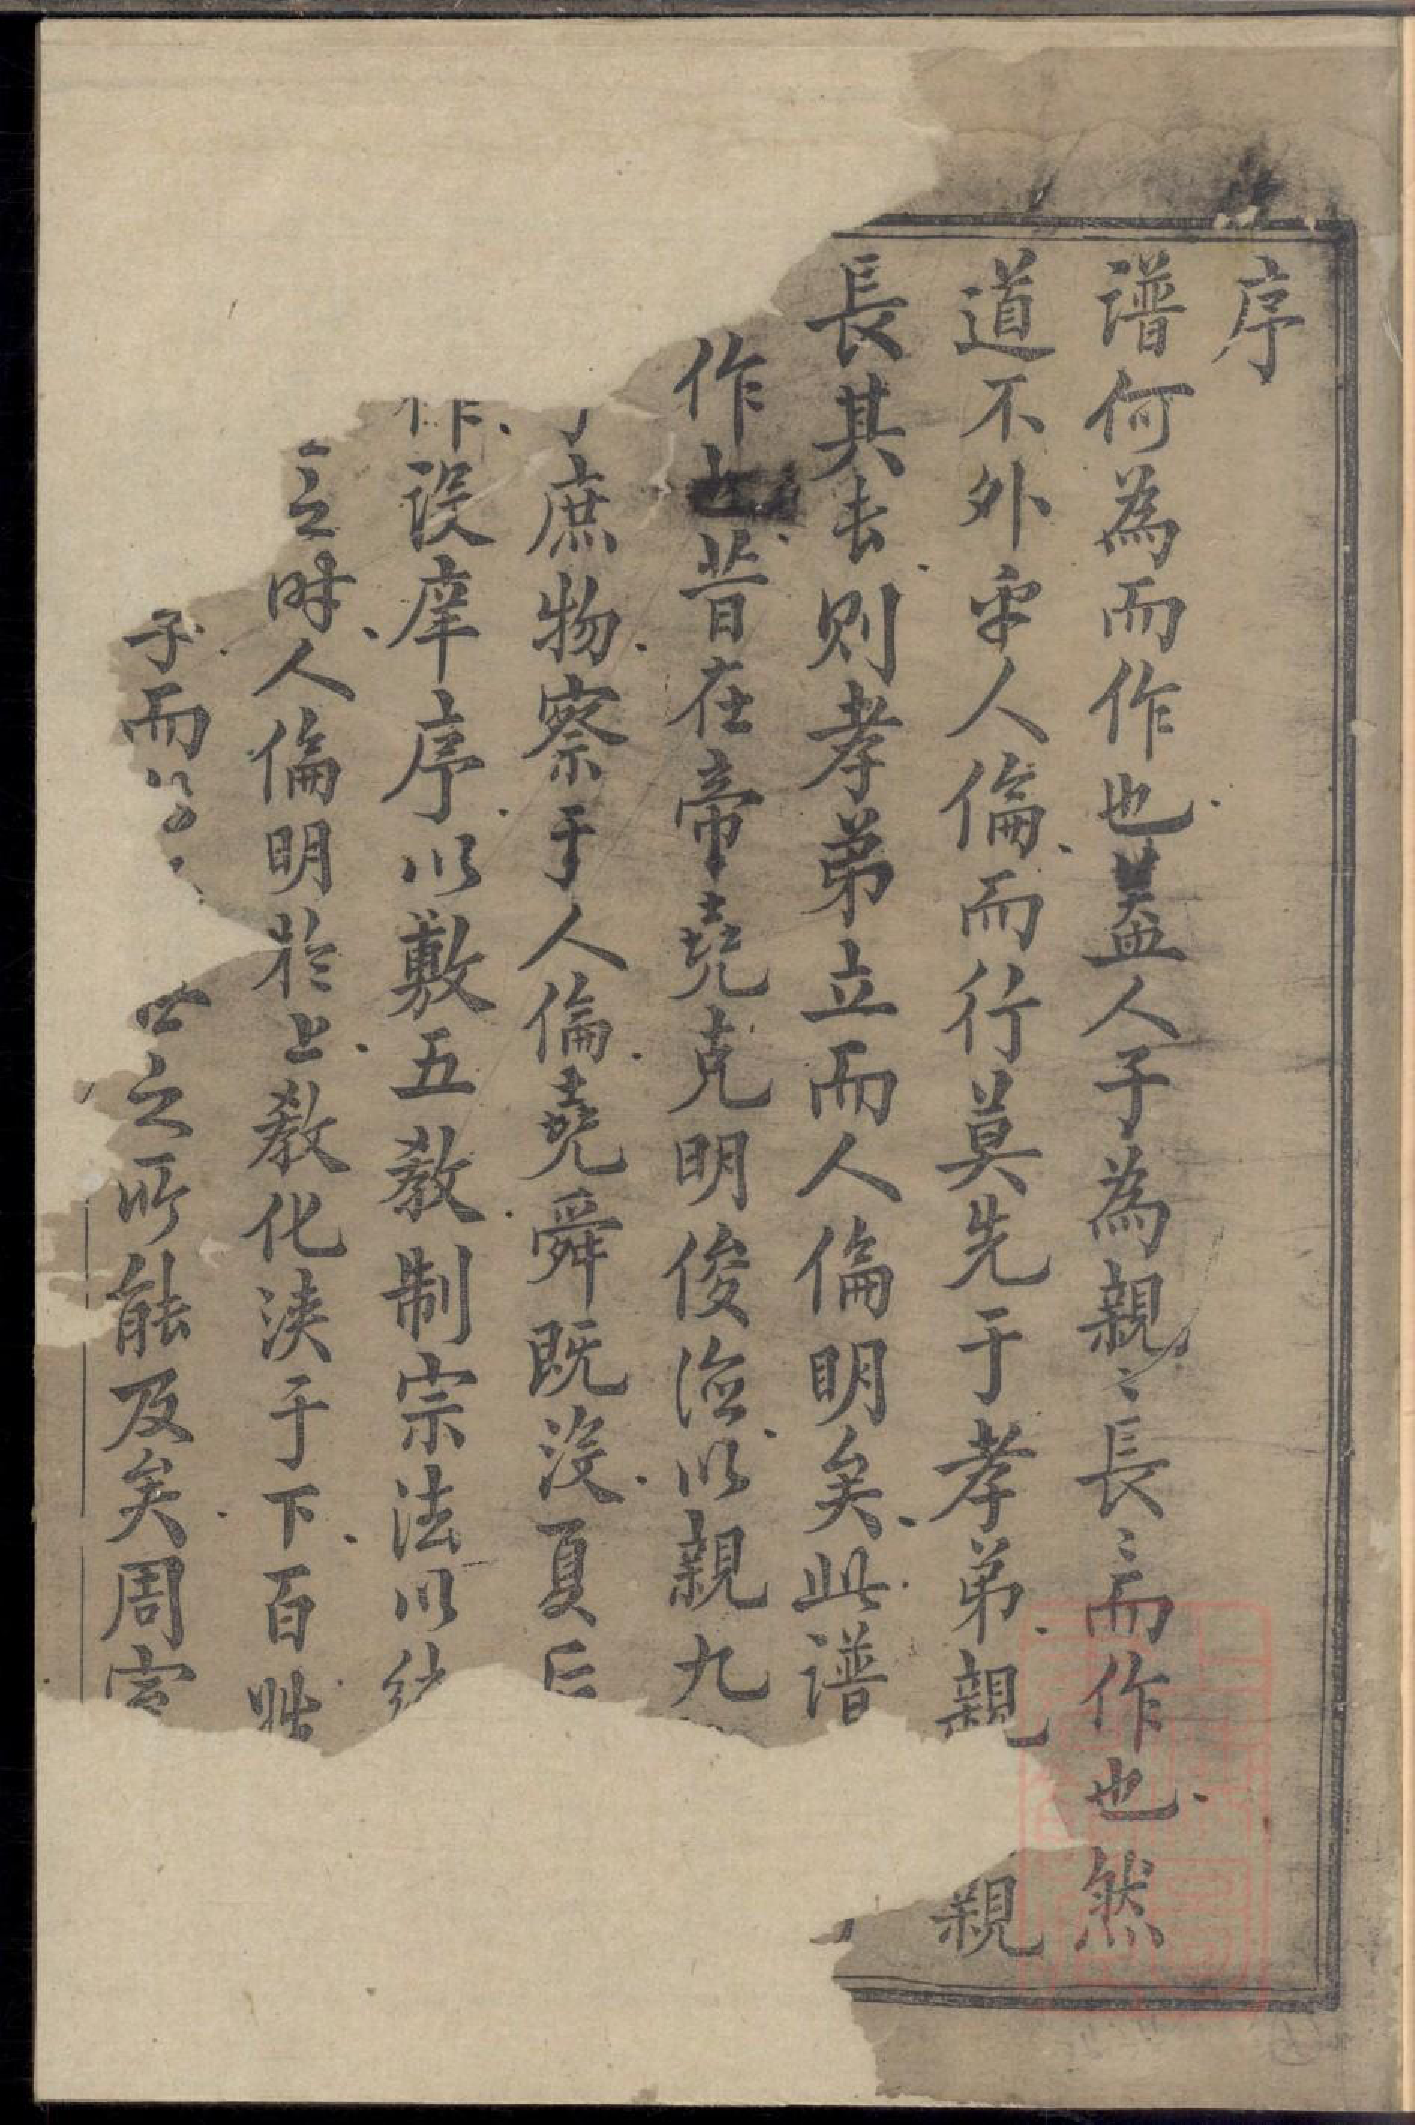 序
譜何為而作也盖人子為親〻長〻而作也然
道不外乎人倫而行莫先于孝弟親親
長其長則孝弟立而人倫明矣此譜
作也昔在帝堯克明俊德以親九
庶物察于人倫堯舜既沒夏后
作設庠序以敷五教制宗法以
之時人倫明於上教化浹于下百姓
子而世之所能及矣周官